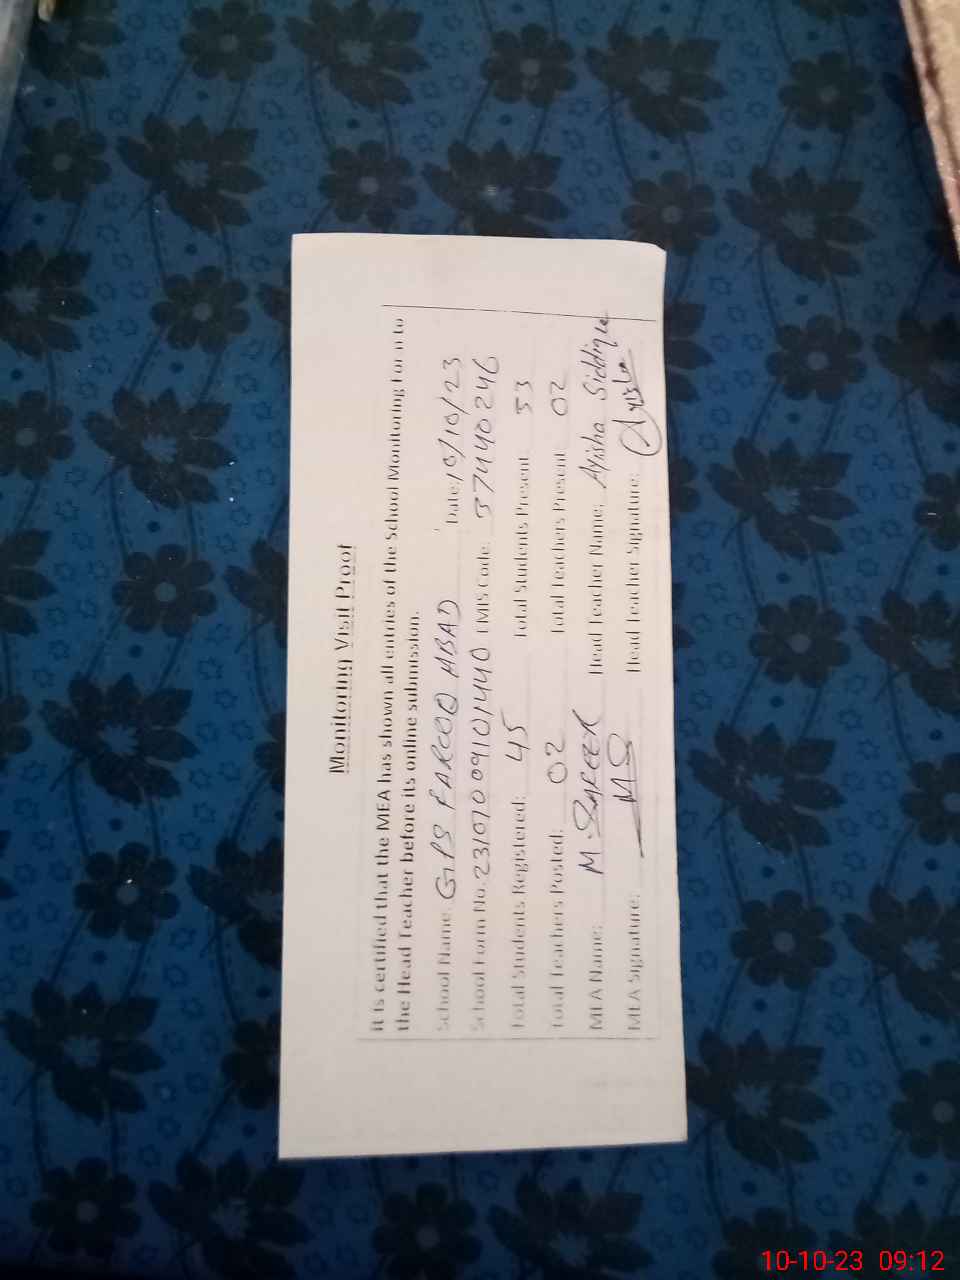 Monitoring Visit Proof
it is certified that the MEA has shown all entries of the School Monitoring Form to
the Head Teacher before its online submission.
School Name: GPS FAROOQ ABAD Date: 10/10/23
School Form No. 231070091011440 EMIS Code: 37440246
Total Students Registered: 45 Total Students Present: 33
Total Teachers Posted: 02 Total Teachers Present: 02
MEA Name: M. SAFEER Head Teacher Name: Ayisha Siddique
MEA Signature: MS Head Teacher Signature: Ayisha
10-10-23 09:12